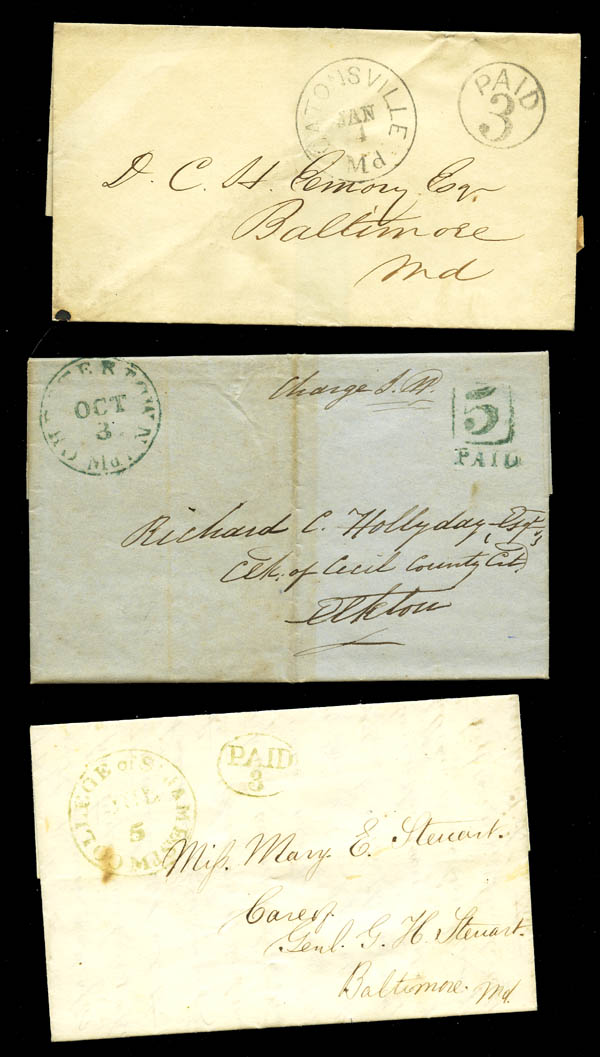 CATONSVILLE
JAN
1
Md.
PAID
3
D. C. H. Emory Esqr.
Baltimore
Md
CHESTERTOWN
OCT
3
Md.
Charge S. M.
5
PAID
Richard C. Hollyday, Esqr.
Clk. of Cecil County Ct.
Elkton
COLLEGE of St. JAMES
JUL
5
MD.
PAID
3
Miſs. Mary. E. Steuart.
Care of.
Genl. G. H. Steuart.
Baltimore. Md.